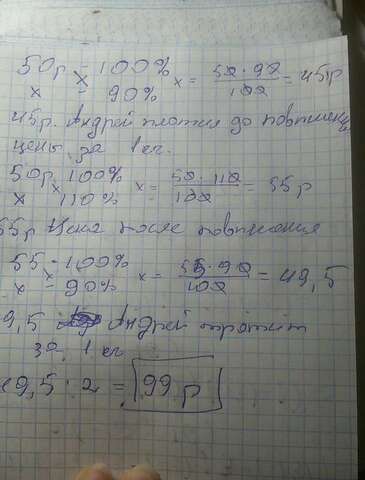 50р - 100%
x - 90% x = 50·90/100 = 45р
45р. Андрей платил до повышения
цены за 1 кг.
50р 100%
x 110% x = 50·110/100 = 55р
55р Цена после повышения
55 - 100%
x - 90% x = 55·90/100 = 49,5
9,5 Андрей тратит
за 1 кг
49,5 · 2 = 99 р